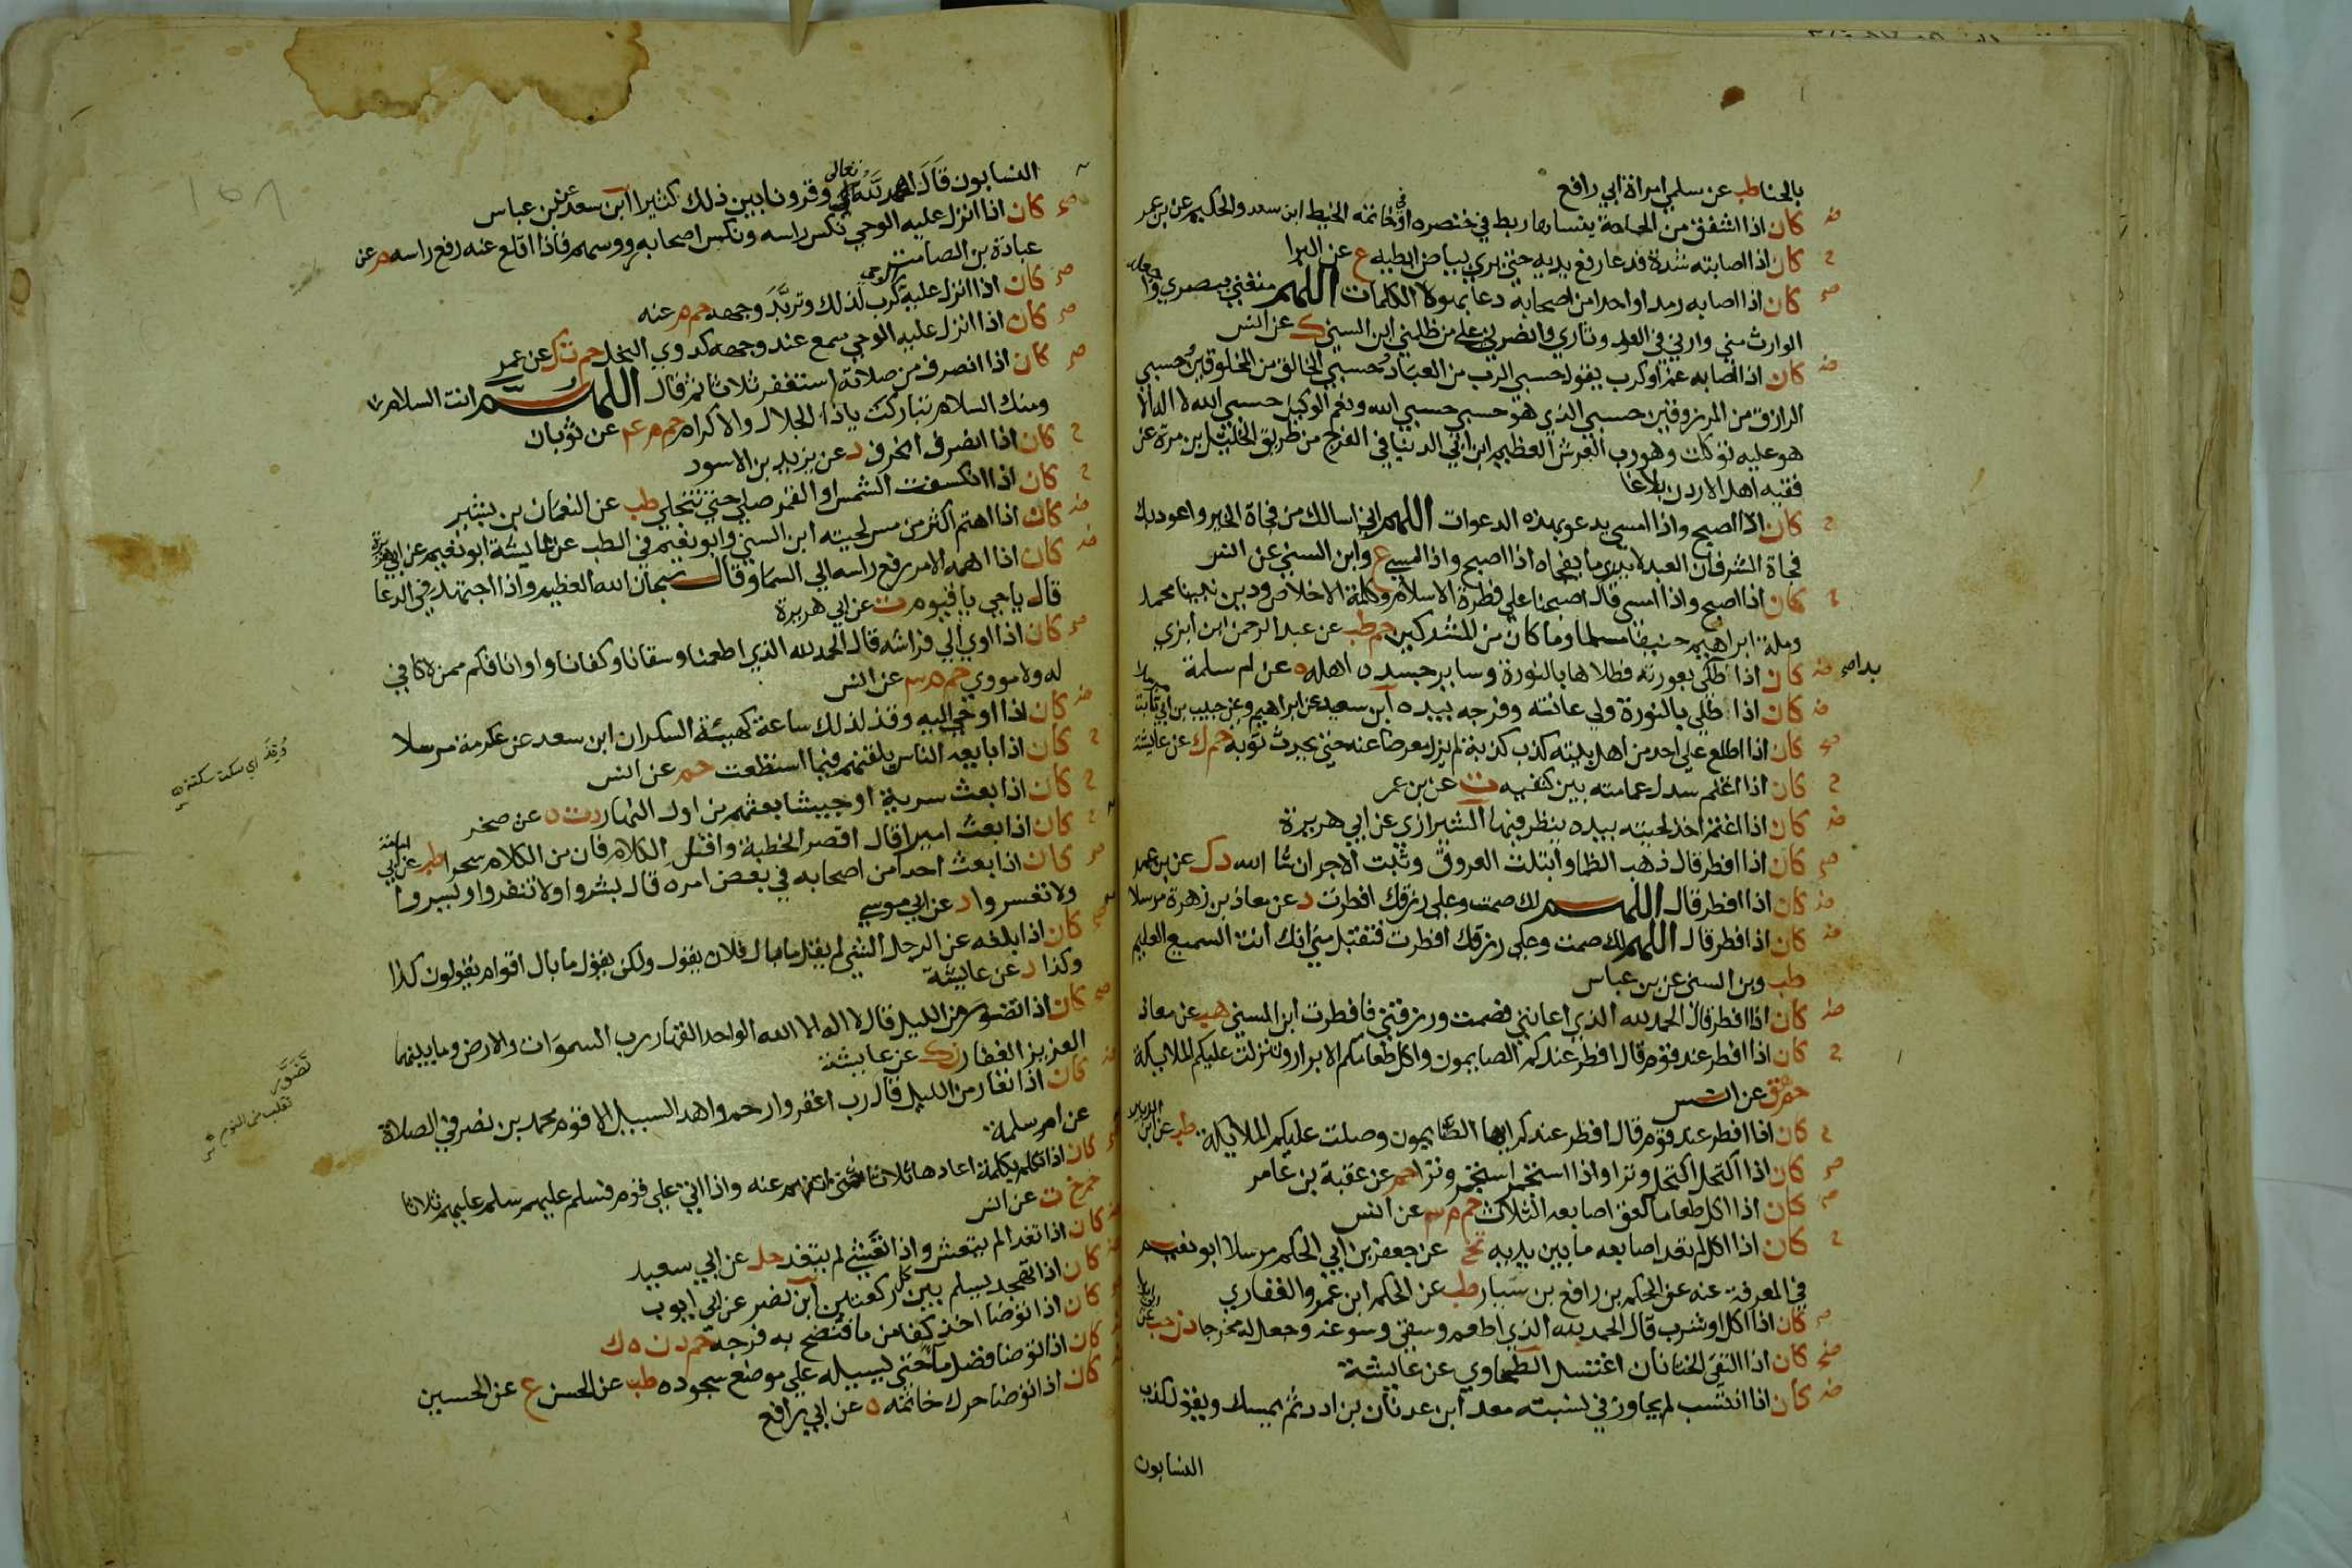 بالحنا طب عن سلمي امراة ابي رافع
كان اذا اشفق من الحاجة ينساها ربط في خنصره او في خاتمه الخيط ابن سعد والحكيم عن بن عمر
كان اذا اصابته شدة فدعا رفع يديه حتي يري بياض ابطيه ع عن البرا
كان اذا اصابه رمد او احدا من اصحابه دعا بهولا الكلمات اللهم متعني ببصري واجعله
الوارث مني وارني في العدو ثاري وانصرني علي من ظلمني ابن السني ك عن انس
كان اذا اصابه غم او كرب يقول حسبي الرب من العباد حسبي الخالق من المخلوقين حسبي
الرازق من المرزوقين حسبي الذي هو حسبي حسبي الله ونعم الوكيل حسبي الله لا اله الا
هو عليه توكلت وهو رب العرش العظيم ابن ابي الدنيا في الفرج من طريق الخليل بن مرة عن
فقيه اهل الاردن بلاغا
كان اذا اصبح واذا امسي يدعو بهذه الدعوات اللهم اني اسالك من فجاة الخير واعوذ بك
فجاة الشر فان العبد لا يدري ما يفجاه اذا اصبح واذا امسي ع وابن السني عن انس
كان اذا اصبح واذا امسي قال اصبحنا علي فطرة الاسلام وكلمة الاخلاص ودين نبينا محمد
وملة ابراهيم حنيفا مسلما وما كان من المشركين حم طب عن عبد الرحمن ابن ابزي
كان اذا اطلي بعورته فطلاها بالنورة وساير جسده اهله ه عن ام سلمة
بدا صح
كان اذا اطلي بالنورة ولي عانته وفرجه بيده ابن سعيد عن ابراهيم وعن حبيب بن ابي ثابت مرسلا
كان اذا اطلع علي احد من اهل بيته كذب كذبة لم يزل معرضا عنه حتي يحدث توبة حم ك عن عايشة
كان اذا اعتم سدل عمامته بين كتفيه ت عن بن عمر
كان اذا اغتم اخذ لحيته بيده ينظر فيها الشيرازي عن ابي هريرة
كان اذا افطر قال ذهب الظما وابتلت العروق وثبت الاجر ان شا الله د ك عن بن عمر
كان اذا افطر قال اللهم لك صمت وعلي رزقك افطرت د عن معاذ بن زهرة مرسلا
كان اذا افطر قال اللهم لك صمت وعلي رزقك افطرت فتقبل مني انك انت السميع العليم
طب وبن السني عن بن عباس
كان اذا افطر قال الحمد لله الذي اعانني فصمت ورزقني فافطرت ابن السني هب عن معاذ
كان اذا افطر عند قوم قال افطر عندكم الصايمون واكل طعامكم الابرار وتنزلت عليكم الملايكة
حم هق عن انس
كان اذا افطر عند قوم قال افطر عندكم الصايمون وصلت عليكم الملايكة طب عن ابن الزبير
كان اذا اكتحل اكتحل وترا واذا استجمر استجمر وترا حم عن عقبة بن عامر
كان اذا اكل طعاما لعق اصابعه الثلاث حم م عن انس
كان اذا اكل لم تعد اصابعه ما بين يديه تخ عن جعفر بن ابي الحكم مرسلا ابو نعيم
في المعرفة عنه عن الحكم بن رافع بن سيار طب عن الحكم ابن عمرو الغفاري
كان اذا اكل او شرب قال الحمد لله الذي اطعم وسقي وسوغه وجعل له مخرجا د ن حب عن ابي ايوب
كان اذا التقي الختانان اغتسل الطحاوي عن عايشة
كان اذا انتسب لم يجاوز في نسبته معد ابن عدنان بن ادد ثم يمسك ويقول كذب
النسابون
النسابون قال الله تعالي وقرونا بين ذلك كثيرا ابن سعد عن بن عباس
كان اذا انزل عليه الوحي نكس راسه ونكس اصحابه رووسهم فاذا اقلع عنه رفع راسه م عن
عبادة بن الصامت
كان اذا انزل عليه الوحي كرب لذلك وتربد وجهه حم م عنه
كان اذا انزل عليه الوحي سمع عند وجهه كدوي النحل حم ت ك عن عمر
كان اذا انصرف من صلاته استغفر ثلاثا ثم قال اللهم انت السلام
ومنك السلام تباركت يا ذا الجلال والاكرام حم م عم عن ثوبان
كان اذا انصرف انحرف د عن يزيد بن الاسود
كان اذا انكسفت الشمس او القمر صلي حتي تنجلي طب عن النعمان بن بشير
كان اذا اهتم اكثر من مس لحيته ابن السني وابو نعيم في الطب عن عايشة ابو نعيم عن ابي هريرة
كان اذا اهمه الامر رفع راسه الي السما وقال سبحان الله العظيم واذا اجتهد في الدعا
قال يا حي يا قيوم ت عن ابي هريرة
كان اذا اوي الي فراشه قال الحمد لله الذي اطعمنا وسقانا وكفانا واوانا فكم ممن لا كافي
له ولا مووي حم م عن انس
كان اذا اوحي اليه وقذ لذلك ساعة كهيئة السكران ابن سعد عن عكرمة مرسلا
وقذ اي سكت سكتة
كان اذا بايعه الناس يلقنهم فيما استطعت حم عن انس
كان اذا بعث سرية او جيشا بعثهم من اول النهار د ت ه عن صخر
كان اذا بعث اميرا قال اقصر الخطبة واقلل الكلام فان من الكلام سحرا طب عن ابي امامة
كان اذا بعث احدا من اصحابه في بعض امره قال بشروا ولا تنفروا ويسروا
ولا تعسروا د عن ابي موسي
كان اذا بلغه عن الرجل الشي لم يقل ما بال فلان يقول ولكن يقول ما بال اقوام يقولون كذا
وكذا د عن عايشة
كان اذا تضور من الليل قال لا اله الا الله الواحد القهار رب السموات والارض وما بينهما
العزيز الغفار ن ك عن عايشة
تضور
تقلب من النوم
كان اذا تعار من الليل قال رب اغفر وارحم واهد السبيل الاقوم محمد بن نصر في الصلاة
عن ام سلمة
كان اذا تكلم بكلمة اعادها ثلاثا حتي تفهم عنه واذا اتي علي قوم فسلم عليهم سلم عليهم ثلاثا
حم خ ت عن انس
كان اذا تغدا لم يتعش واذا تعشي لم يتغد حل عن ابي سعيد
كان اذا تهجد يسلم بين كل ركعتين ابن نصر عن ابي ايوب
كان اذا توضا اخذ كفا من ما فنضح به فرجه حم د ن ه ك
كان اذا توضا فضل ما حتي يسيله علي موضع سجوده طب عن الحسن ع عن الحسين
كان اذا توضا حرك خاتمه ه عن ابي رافع